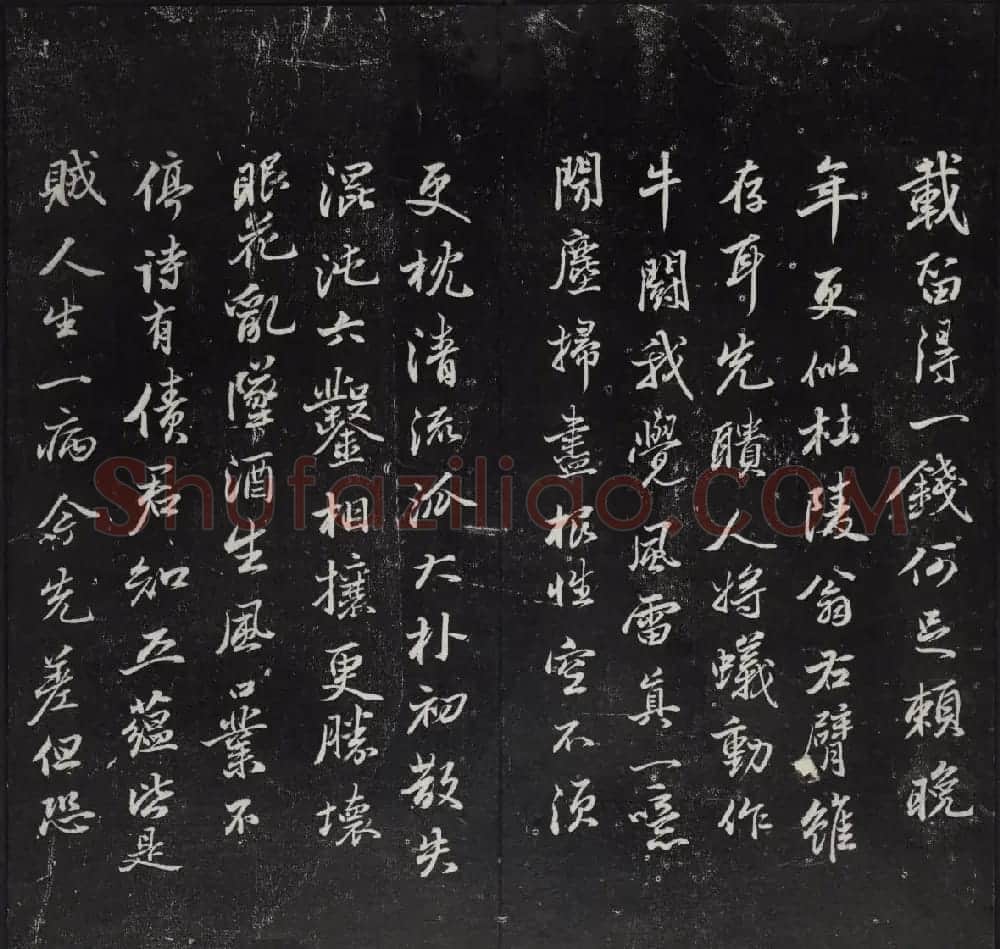 載留得一錢何足賴晚
年更似杜陵翁右臂雖
存耳先聵人將蟻動作
牛鬪我覺風雷真一噫
聞塵掃盡根性空不須
更枕清流派大朴初散失
混沌六鑿相攘更勝壞
眼花亂墜酒生風口業不
停詩有債君知五蘊皆是
賊人生一病今先差但恐
Shufaziliao.COM